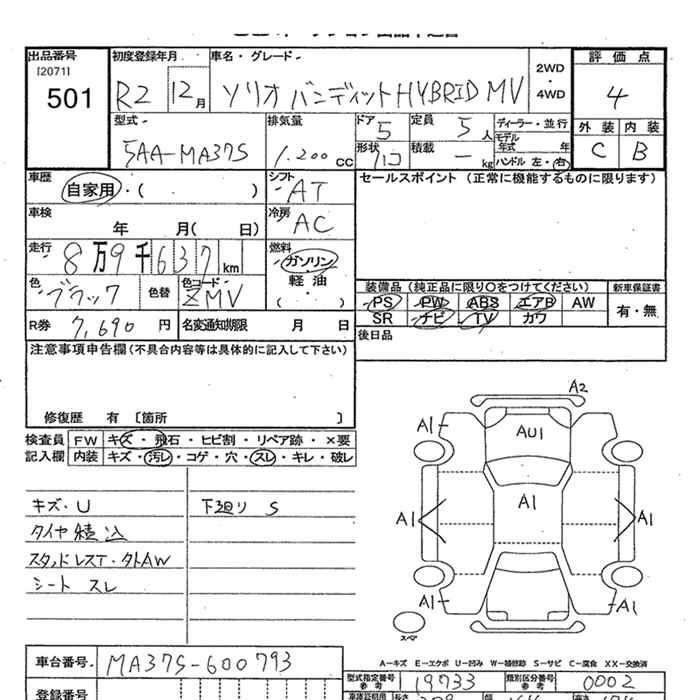 出品番号 初度登録年月 車名・グレード 評価点
[2071]
501 R2 12月 ソリオ バンディット HYBRID MV 2WD・4WD 4
型式 排気量 ドア 定員 ディーラー・並行 外装 内装
5AA-MA37S 1.200cc 5 5人 モデル年式 年 C B
形状 ハコ 積載 ー kg ハンドル 左・右
車歴 シフト セールスポイント (正常に機能するものに限ります)
自家用・( ) AT
車検 冷房
年 月( 日) AC
走行 燃料
8万9千637km ガソリン・軽油・( )
色 色替 色コード 装備品(純正品に限り○をつけてください) 新車保証書
ブラック ZMV PS PW ABS エアB AW 有・無
SR ナビ TV カワ
R券 7,690円 名変通知期限 月 日 後日品
注意事項申告欄(不具合内容等は具体的に記入して下さい)
修復歴 有 〔箇所 〕
検査員 FW キズ・飛石・ヒビ割・リペア跡・×要
記入欄 内装 キズ・汚レ・コゲ・穴・スレ・キレ・破レ
キズ・U 下廻リ S
タイヤ積込
スタッドレスT・タトAW
シート スレ
A2
A1
AU1
A1
A1
A1
A1
A1
スペア
A-キズ E-エクボ U-凹み W-補修跡 S-サビ C-腐食 XX-交換済
車台番号 MA37S-600793
型式指定番号 参考 19733 類別区分番号 参考 0002
登録番号 車庫証明用 長さ 幅 高さ